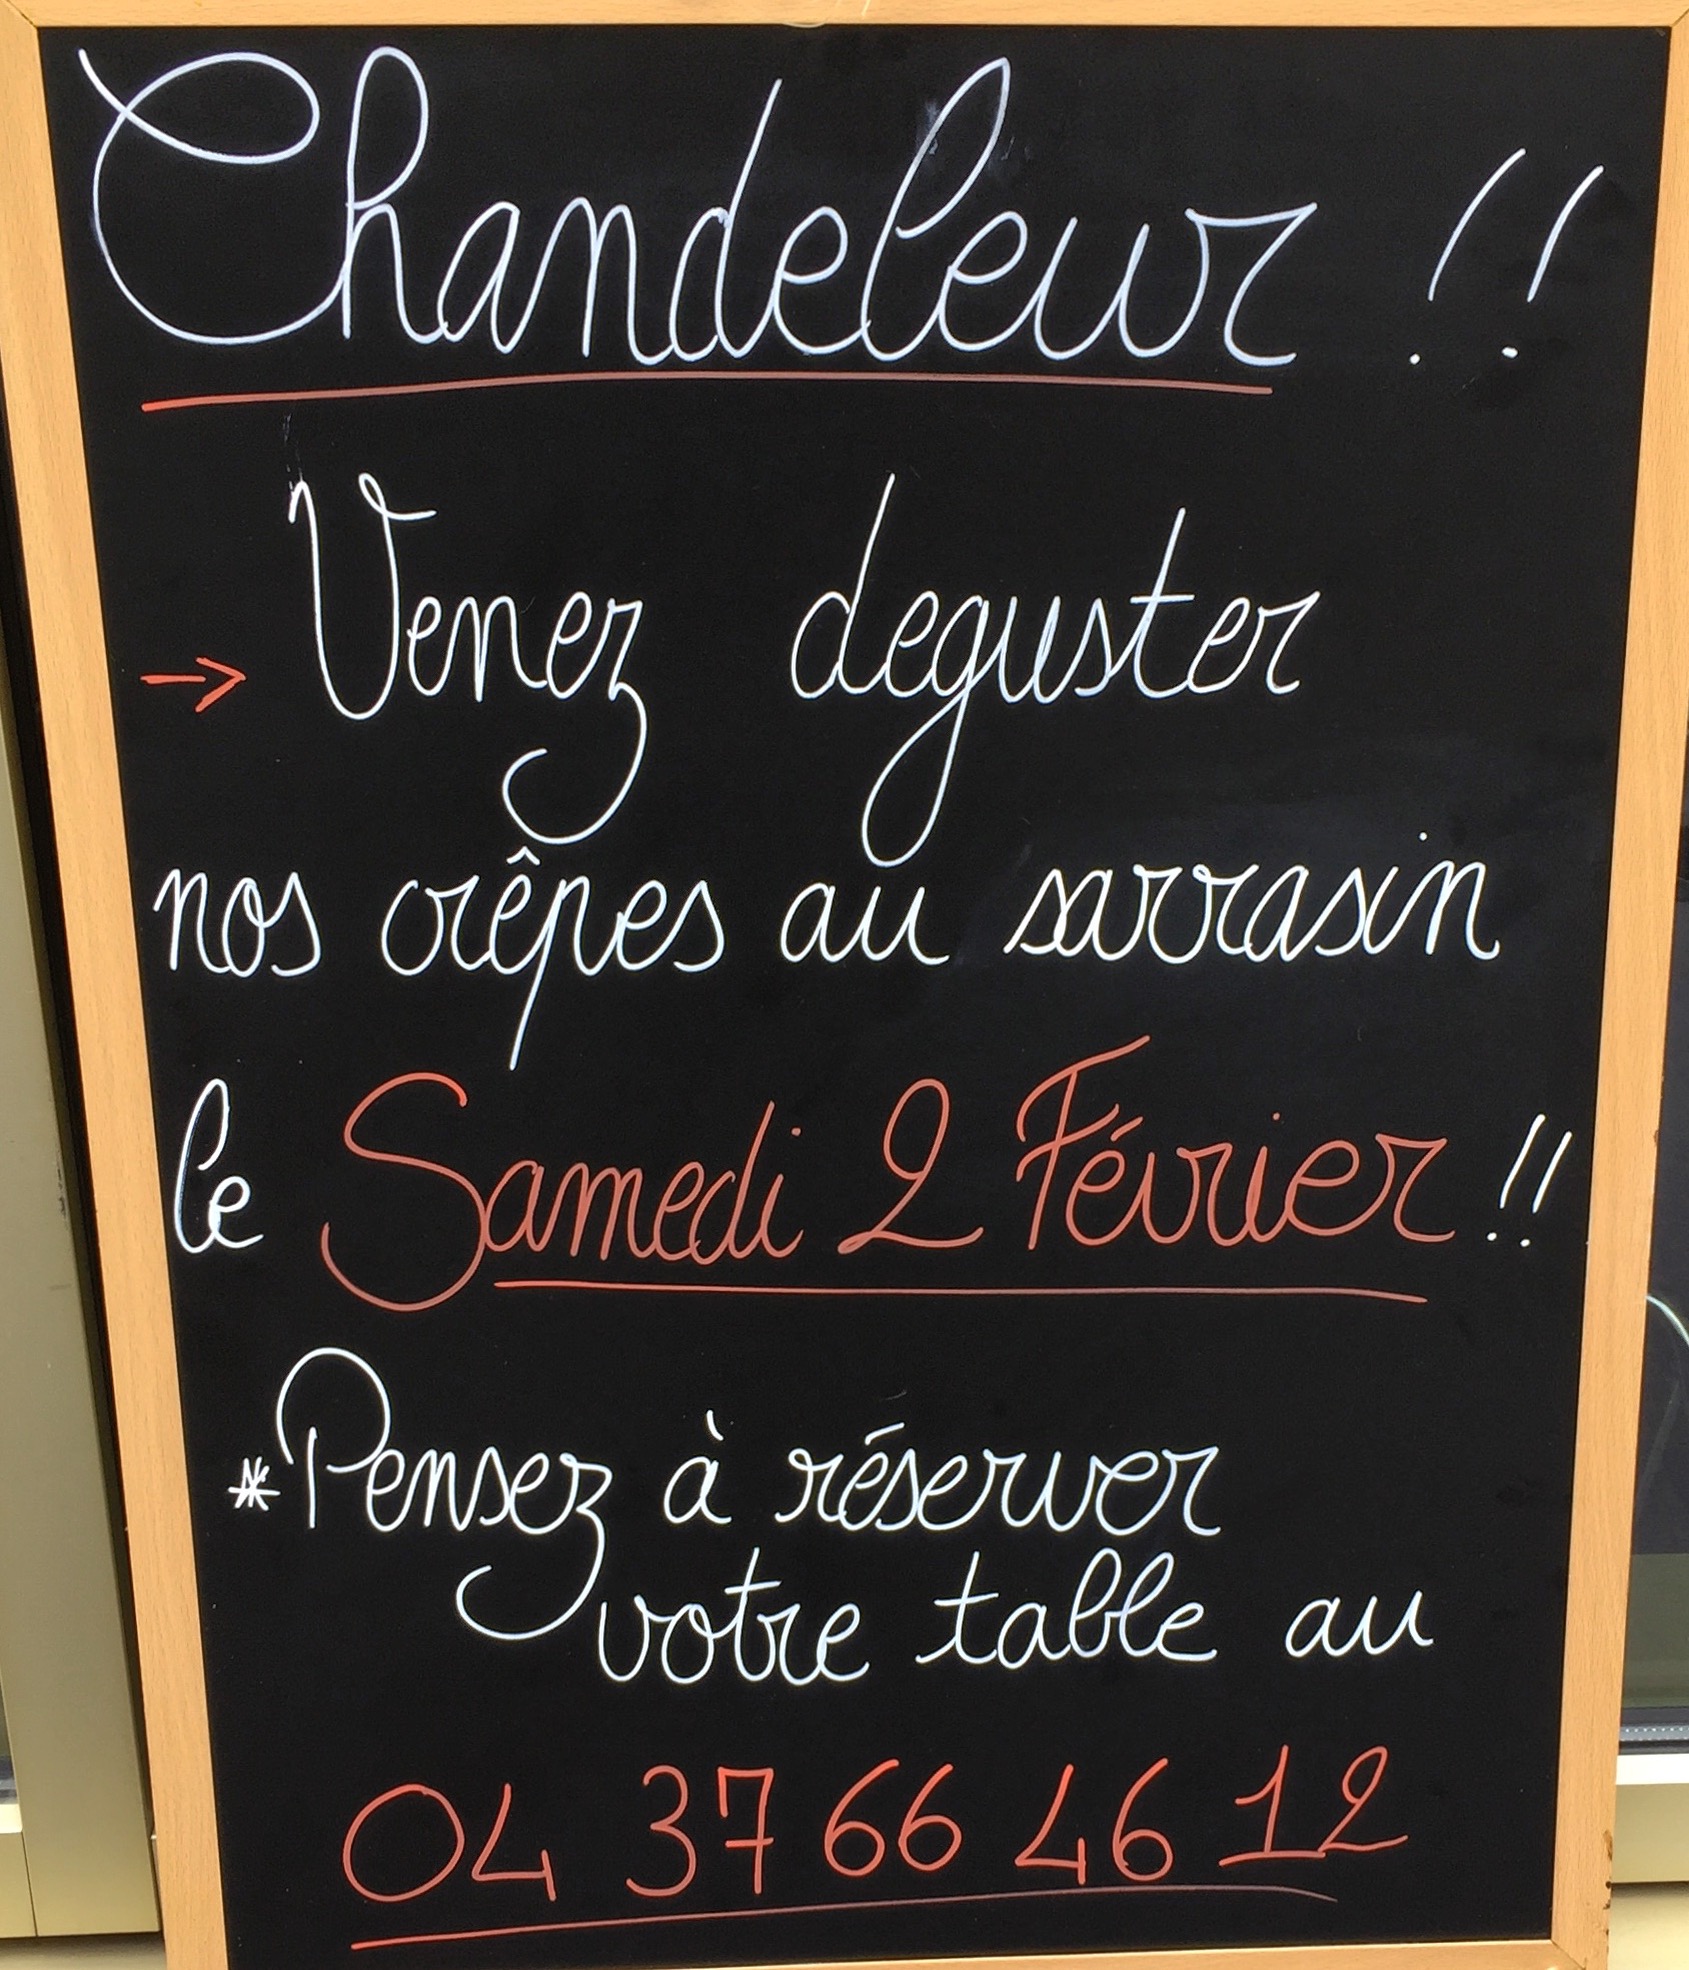 Chandeleur !!
→ Venez deguster
nos crêpes au sarrasin
le Samedi 2 Février !!
*Pensez à réserver
votre table au
04 37 66 46 12